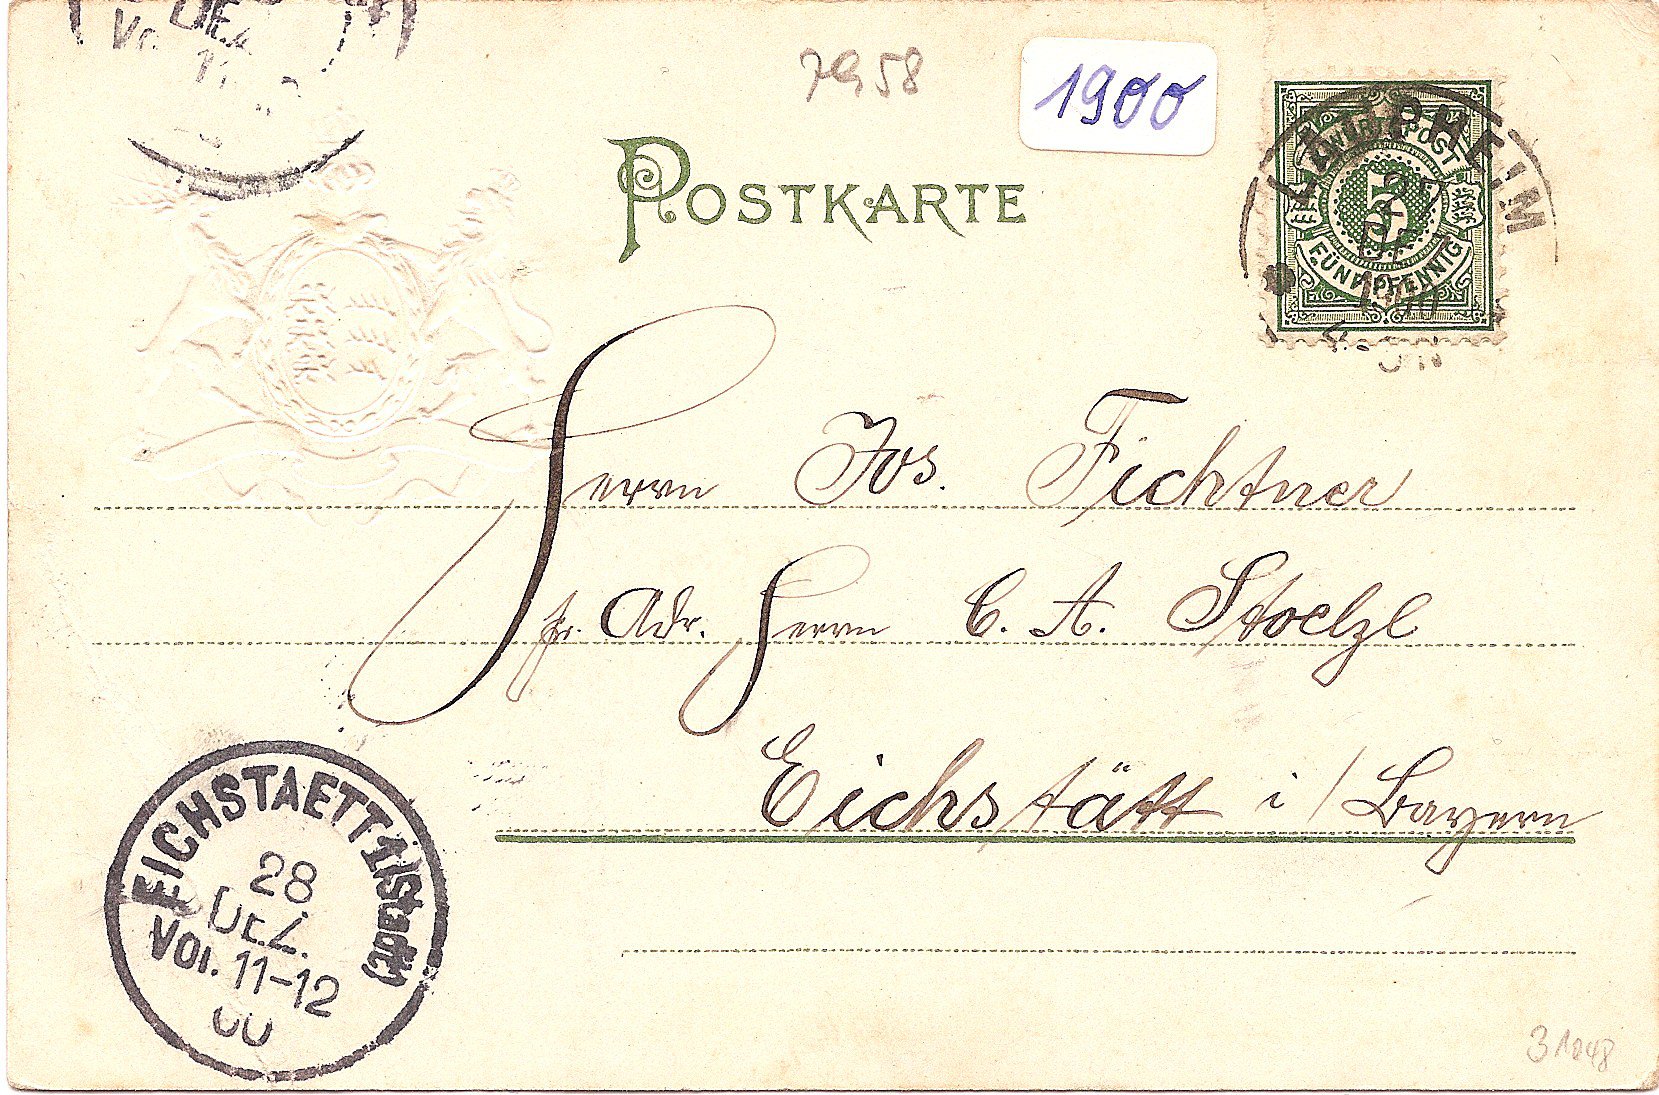 DEZ.
Vo.
7958
1900
POSTKARTE
LAUPHEIM
K. WÜRTT. POST
5
FÜNF PFENNIG
Herrn Jos. Fichtner
pr. Adr. Herrn C. A. Stoelzl
Eichstätt i/Bayern
EICHSTAETT 1 (Stadt)
28
DEZ.
Vor. 11-12
00
31048